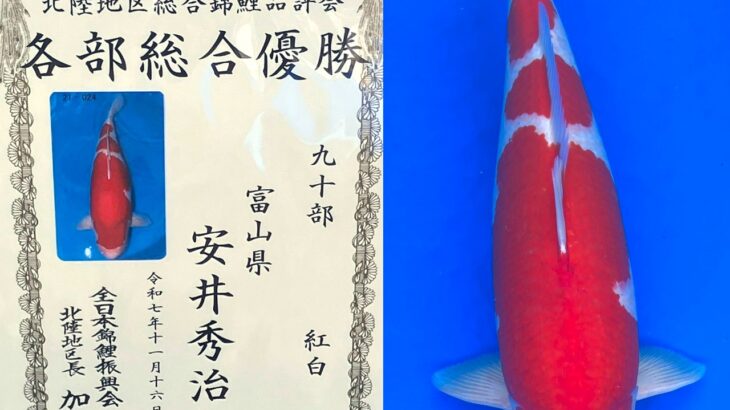 北陸地区総合錦鯉品評会
各部総合優勝
九十部 紅白
富山県
安井秀治
令和七年十一月十六日
全日本錦鯉振興会
北陸地区長 加
21-024